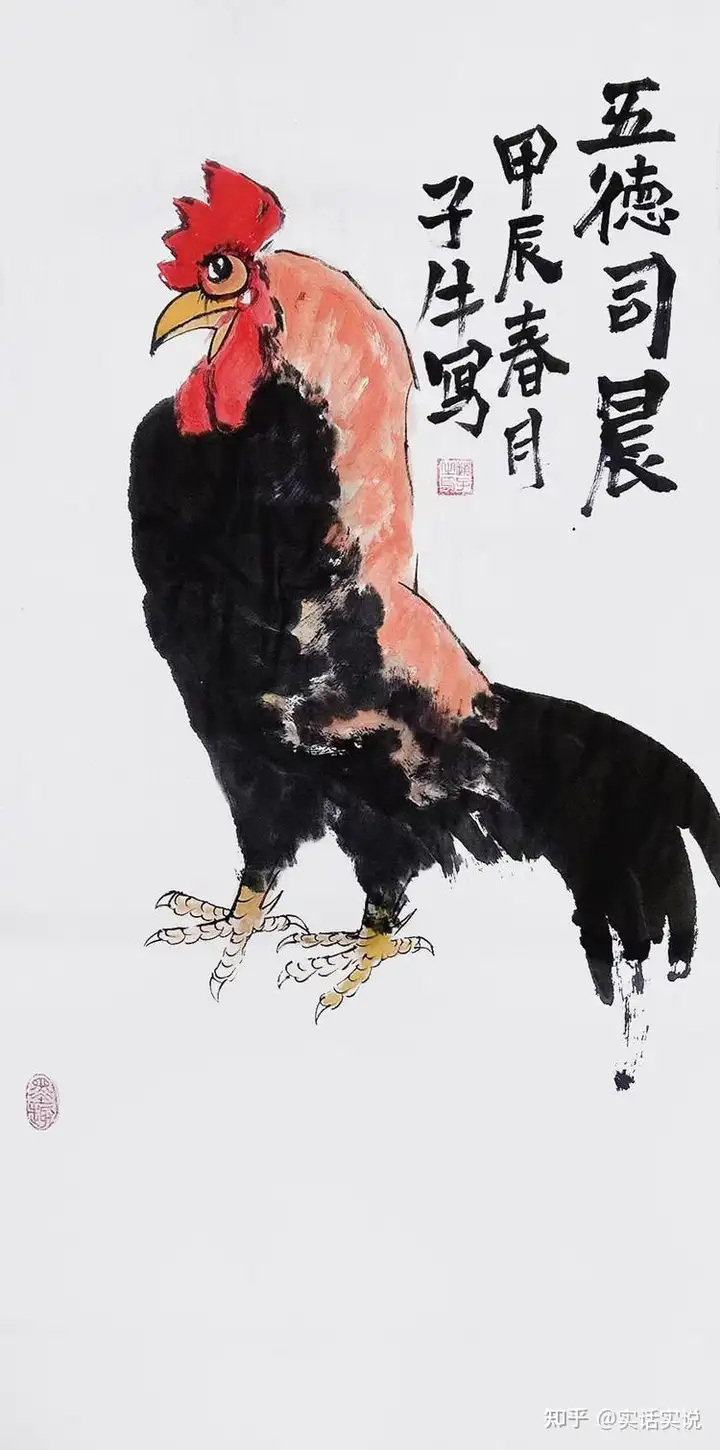 五德司晨
甲辰春月
子牛写
知乎 @实话实说